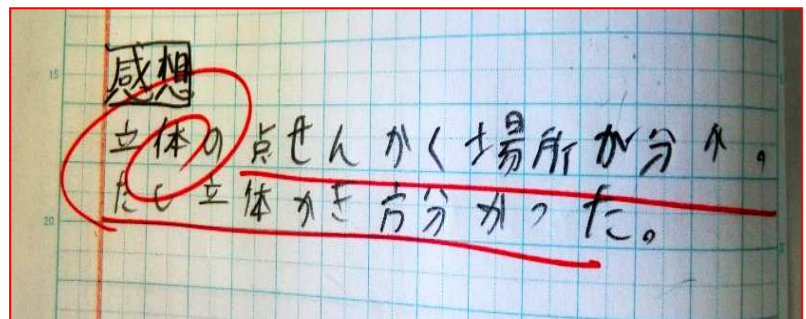 感想
立体の点せんかく場所が分か。
たし立体かき方分かった。